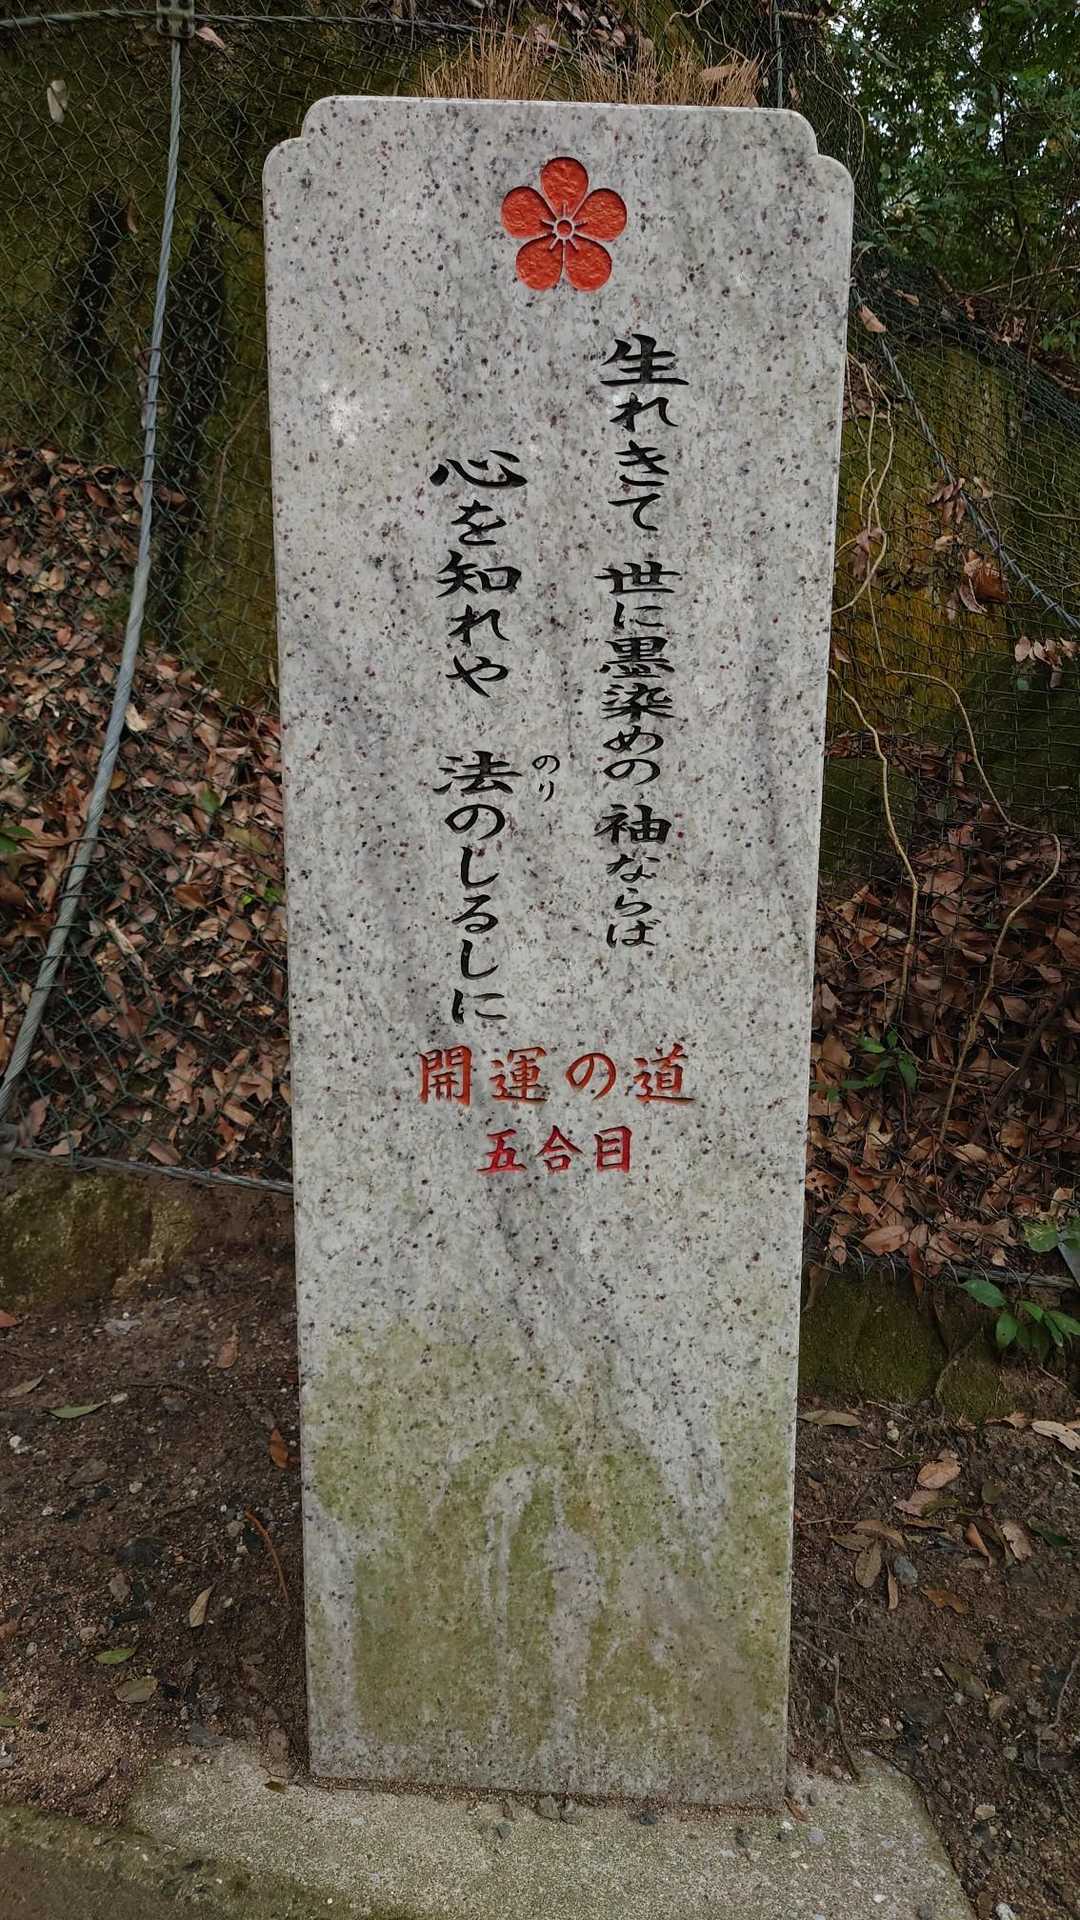 生れきて 世に墨染めの 袖ならば
心を知れや 法のしるしに
のり
開運の道
五合目